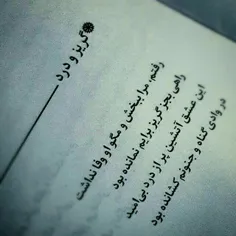 گریز و درد
رفتم، مرا ببخش و مگو او وفا نداشت
راهی بجز گریز برایم نمانده بود
این عشق آتشین پر از درد بی‌امید
در وادی گناه و جنونم کشانده بود